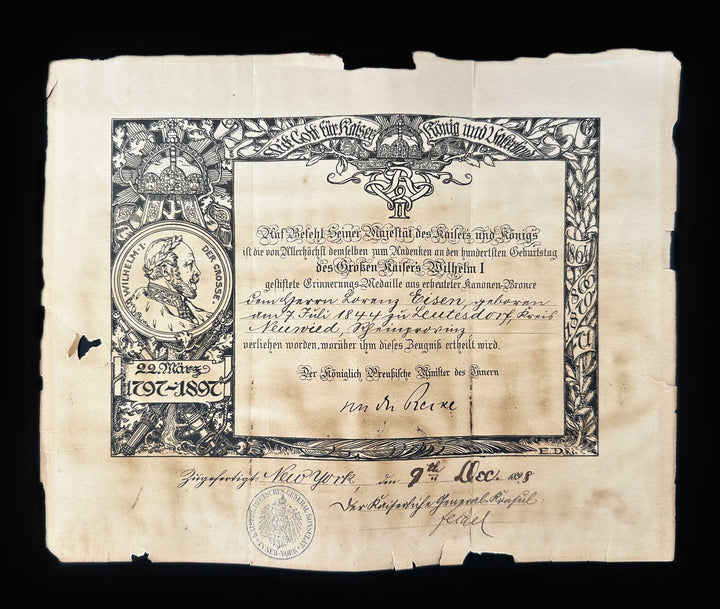 Mit Gott für Kaiser König und Vaterland
W II
WILHELM·I· DER GROSSE
1864
1866
1870
71
22. März
1797–1897
Auf Befehl Seiner Majestät des Kaisers und Königs
ist die von Allerhöchst demselben zum Andenken an den hundertsten Geburtstag
des Großen Kaisers Wilhelm I
gestiftete Erinnerungs-Medaille aus erbeuteter Kanonen-Bronce
dem Herrn Lorenz Eisen, geboren
am 7. Juli 1844 zu Leutesdorf, Kreis
Neuwied, Rheinprovinz
verliehen worden, worüber ihm dieses Zeugniß ertheilt wird.
Der Königlich Preußische Minister des Innern
von der Recke
E.D.
Zugefertigt. New York, den 9ten Dec. 1898
Der Kaiserliche General-Konsul.
KAISERL. DEUTSCHES GENERAL KONSULAT
IN NEW-YORK